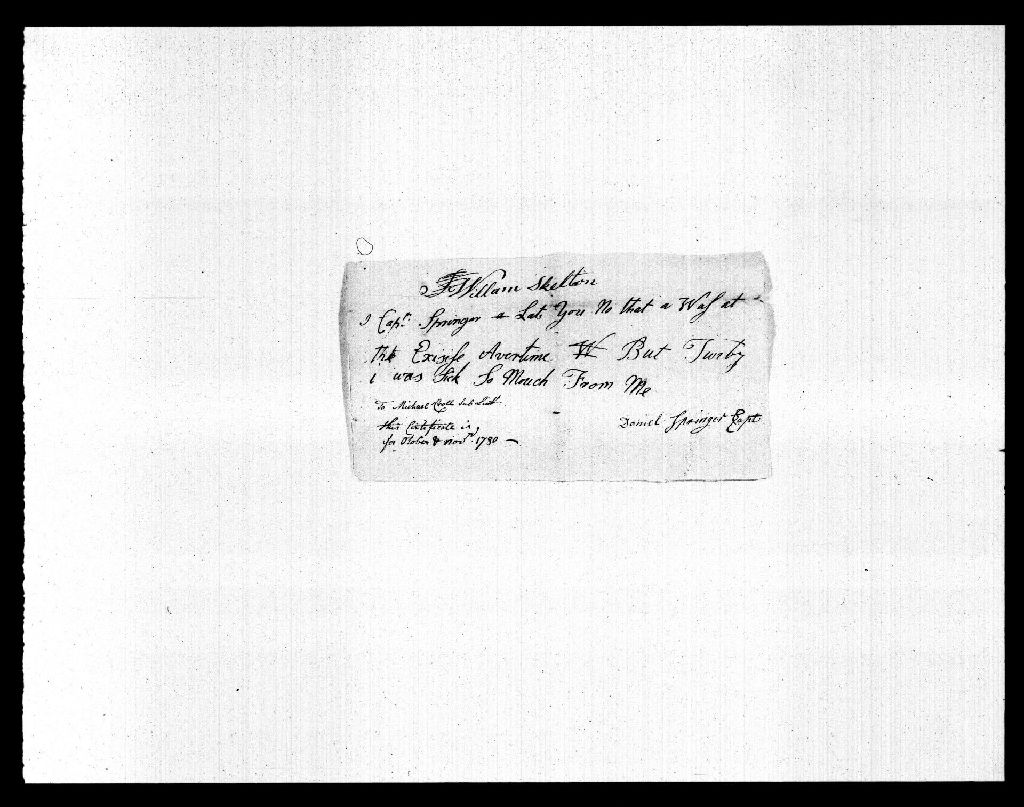 William Skelton
I Capt. Springer Lat You No that a Was at
the Exisise Avertime But Twisby
i was Sick So Mouch From Me
To Michael Sub Lieut.
this Certificate is,
for Otober & novr. 1780 —
Daniel Springer Capt